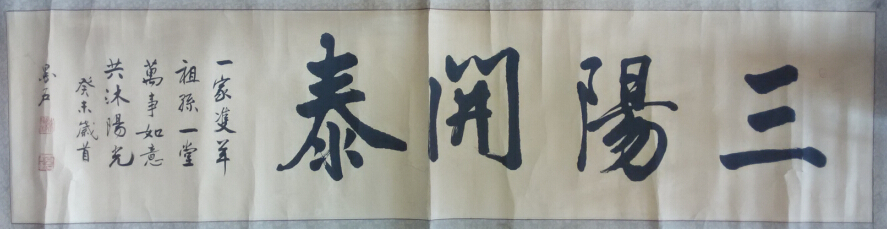 三陽開泰
一家雙羊
祖孫一堂
萬事如意
共沐陽光
癸未歲首